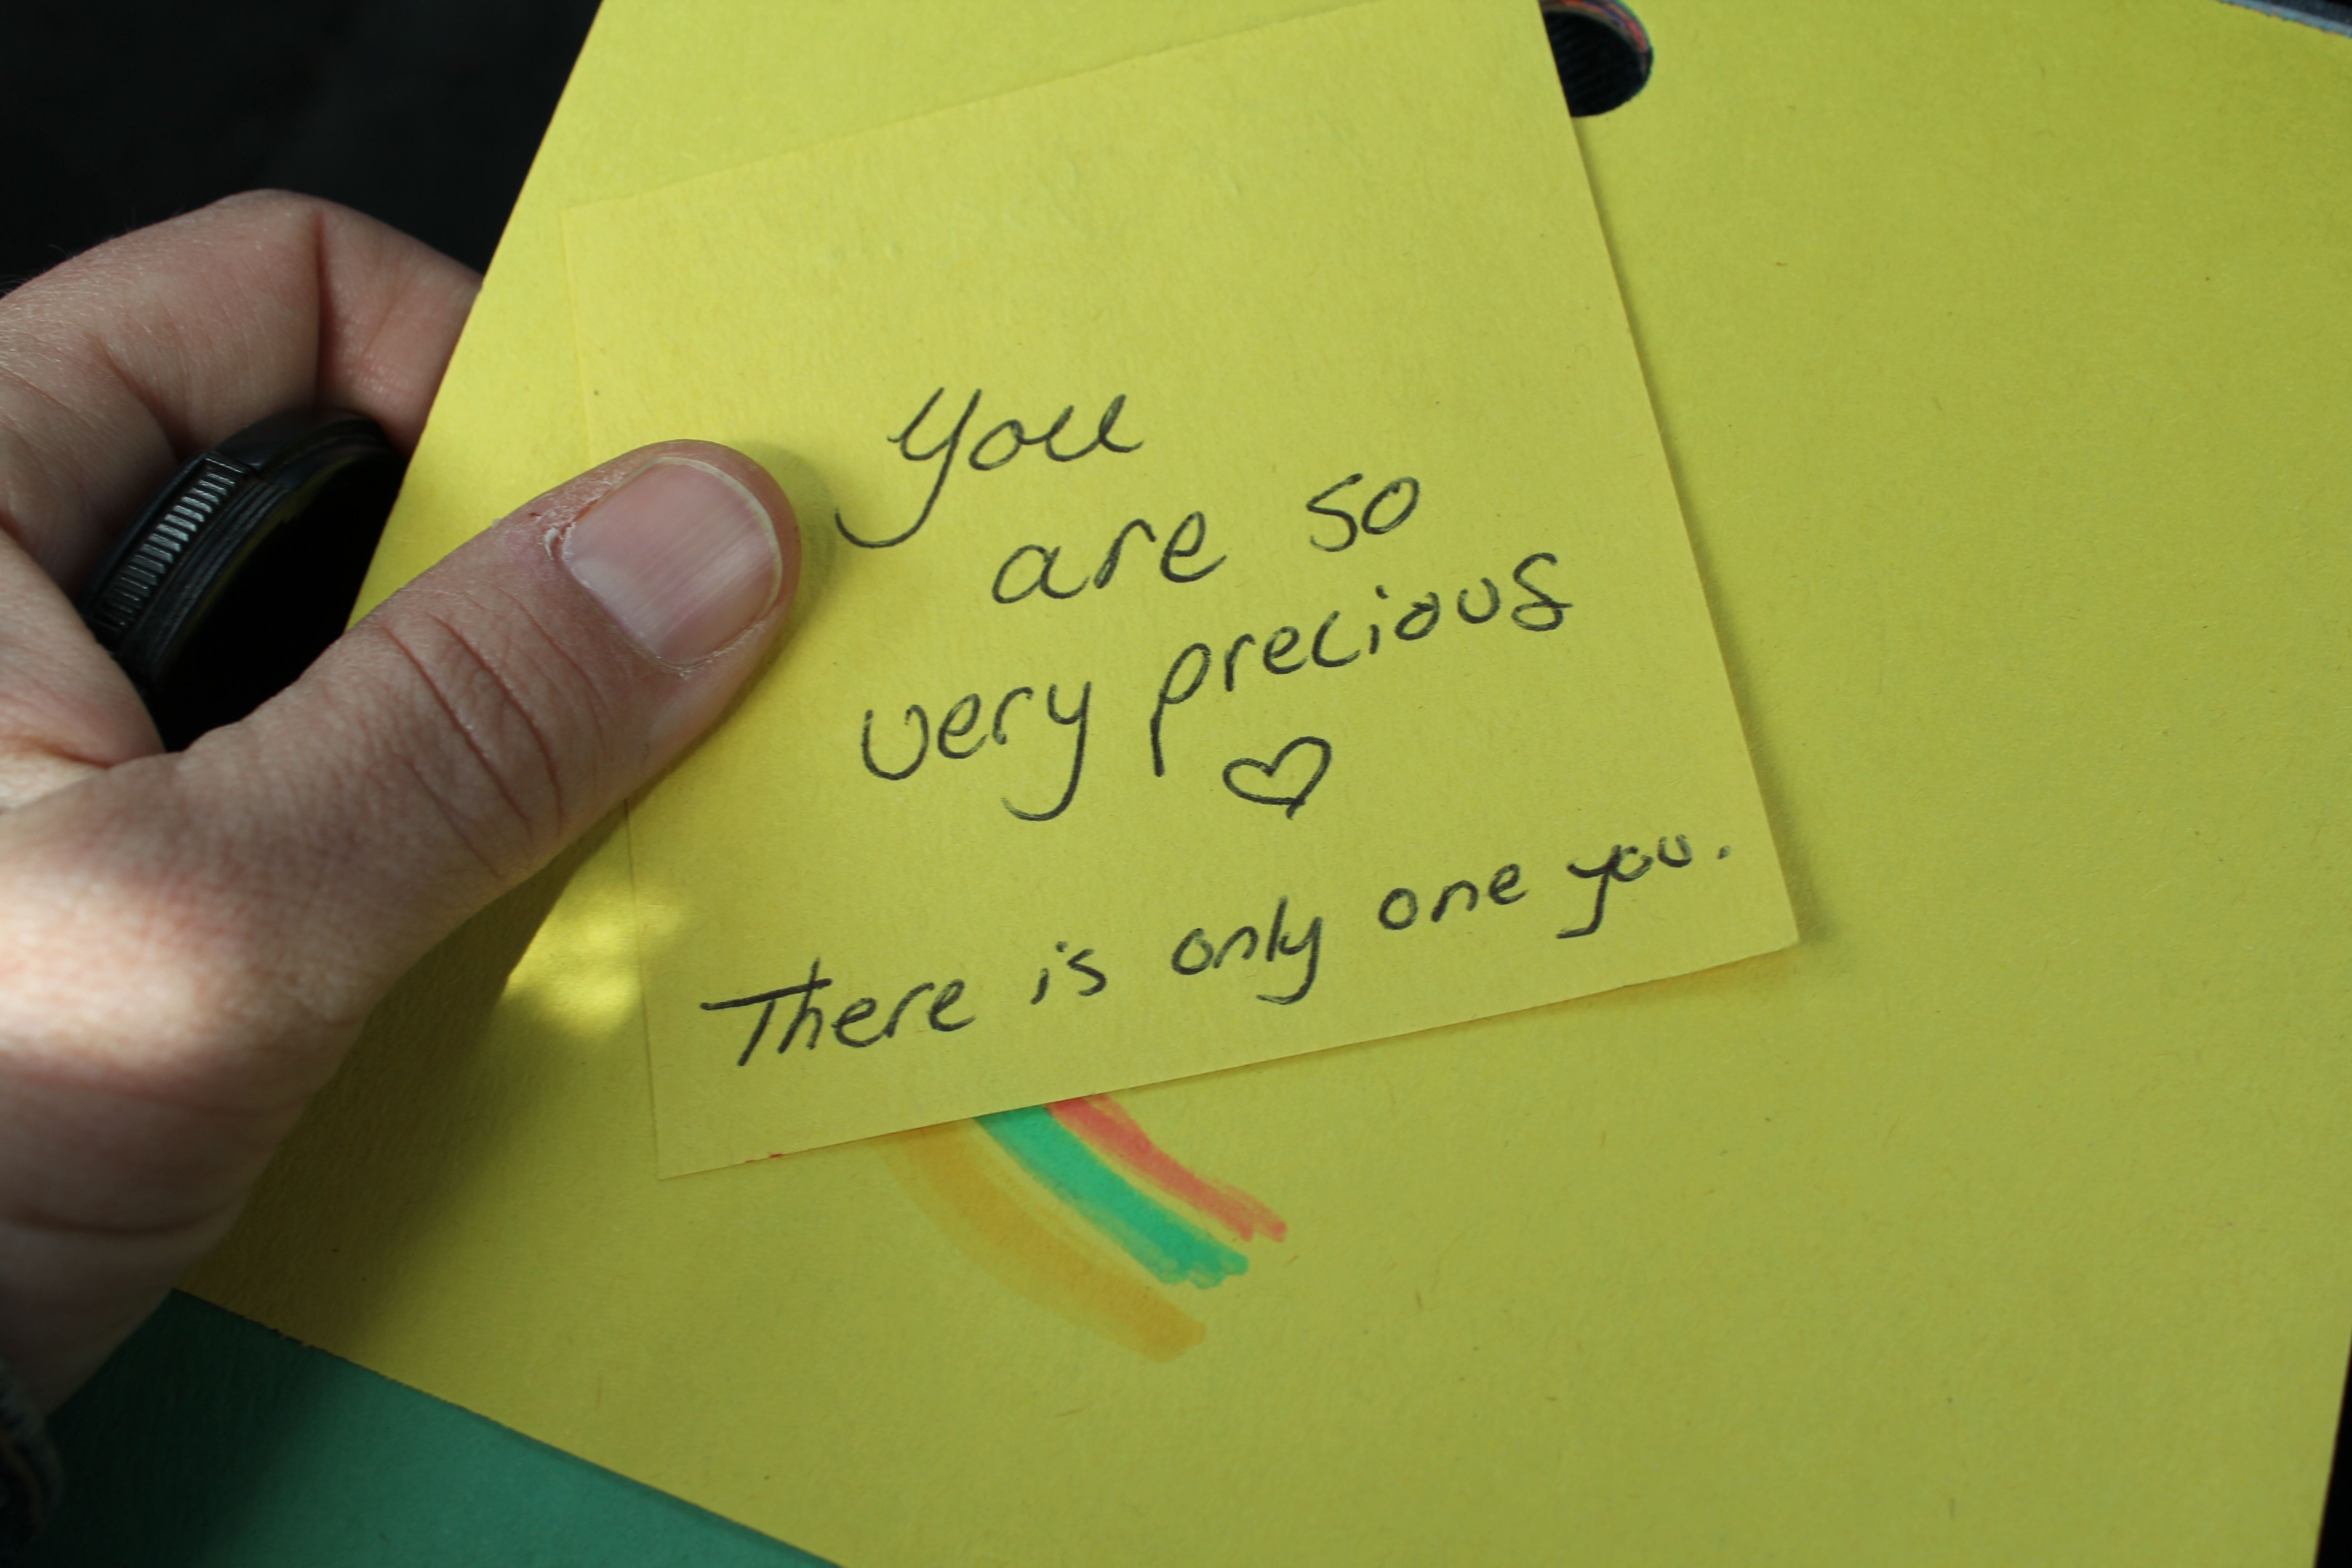 You
are so
very precious
♡
There is only one you.